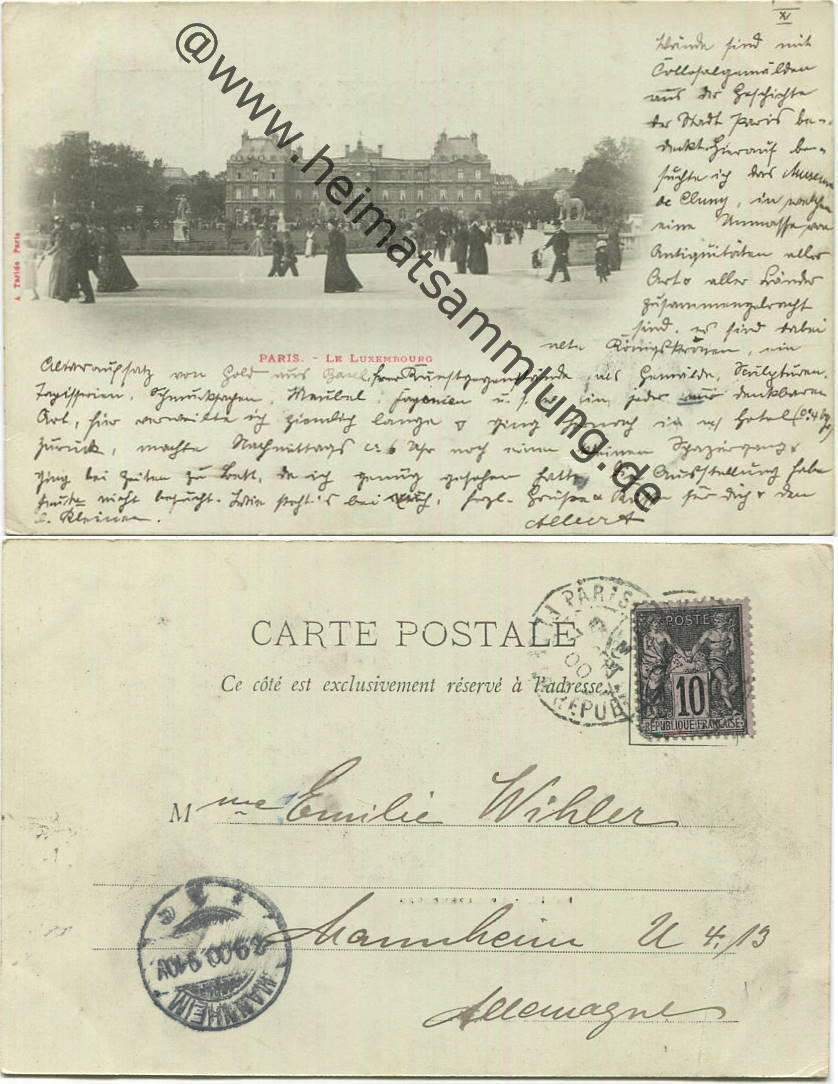 XV
Wände sind mit
Collosalgemälden
aus der Geschichte
der Stadt Paris be-
deckt. Hierauf be-
suchte ich das Museum
de Cluny, in welchem
eine Unmasse von
Antiquitäten aller
Art & aller Länder
zusammengebracht
sind. es sind dabei
alte Königskronen, ein
A. Taride Paris
PARIS. - LE LUXEMBOURG
Altaraufsatz von Gold aus Basel, ferner Kunstgegenstände als Gemälde, Sculpturen,
Tapisserien, Schmucksachen, Meubel, u. s. w. in jeder nur denkbaren
Art, hier verweilte ich ziemlich lange & ging hernach in m/ Hotel
zurück, machte Nachmittags ca 6 Uhr noch einen kleinen Spaziergang &
ging bei Zeiten zu Bett, da ich genug gesehen hatte, die Ausstellung habe
heute nicht besucht. Wie steht's bei Euch, herzl. Grüße & Küsse für dich & den
l. Kleinen.
Albert
@www.heimatsammlung.de
CARTE POSTALE
Ce côté est exclusivement réservé à l'adresse.
PARIS
00
RÉPUB
POSTE
10
RÉPUBLIQUE FRANÇAISE
Mme Emilie Wihler
Mannheim U 4. 13
Allemagne
MANNHEIM
8.9.00. 9-10V